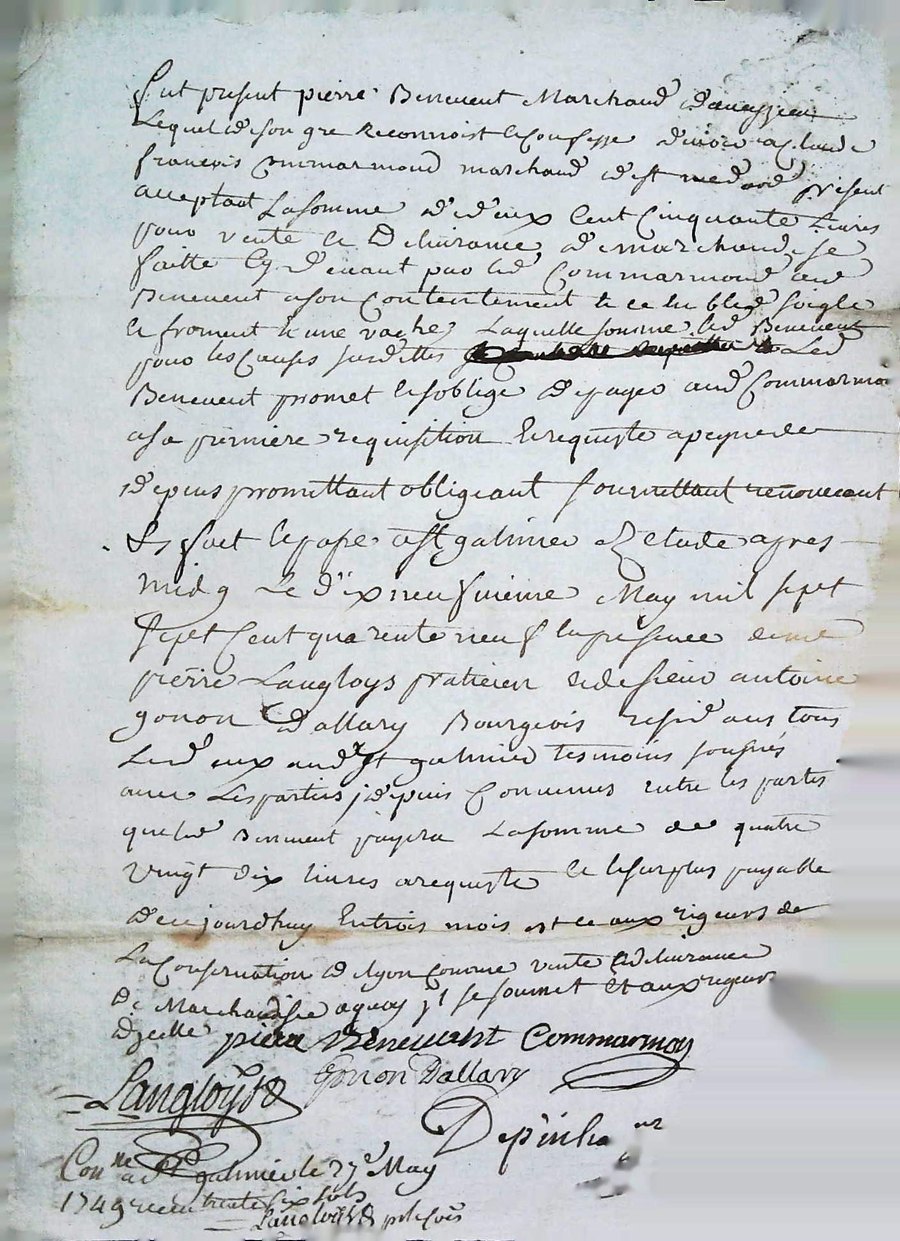 fut present pierre Benevent Marchand
Lequel de son gre reconnoist et confesse devoir a Claude
francois Commarmond marchand present
acceptant La somme de deux Cent Cinquante Livres
pour vente et Delivrance de marchandise
faitte cy devant par led Commarmond aud
Benevent a son Contentement et ce en bled soigle
et froment et une vache Laquelle somme led Benevent
pour les Causes susdittes Led
Benevent promet et soblige de payer aud Commarmon
a sa permiere requisition et requiste a peyne de
depens promettant obligeant soumettant renonceant
fait et passe a st galmier etude apres
midy Le dixneufvieme May mil sept
sept Cent quarente neuf en presence de me
pierre Langloys praticien et de sieur antoine
gonon Dallary Bourgeois residants tous
Les deux aud st galmier tesmoins sousnes
avec Les parties j depuis Convenus entre les parties
que led Benevent payera La somme de quatre
vingt dix livres a requiste et le surplus payable
decejourdhuy en trois mois et ce aux rigeurs de
La Conservation de lyon Comme vente et delivrance
De Marchandise a quoy jl se soumet et aux rigeurs
Dycelle pierre Benevent Commarmon
Langloys gonon Dallary
Depinha
Con ne a st galmier le 27e May
1749 receu trente six sols
Langloys